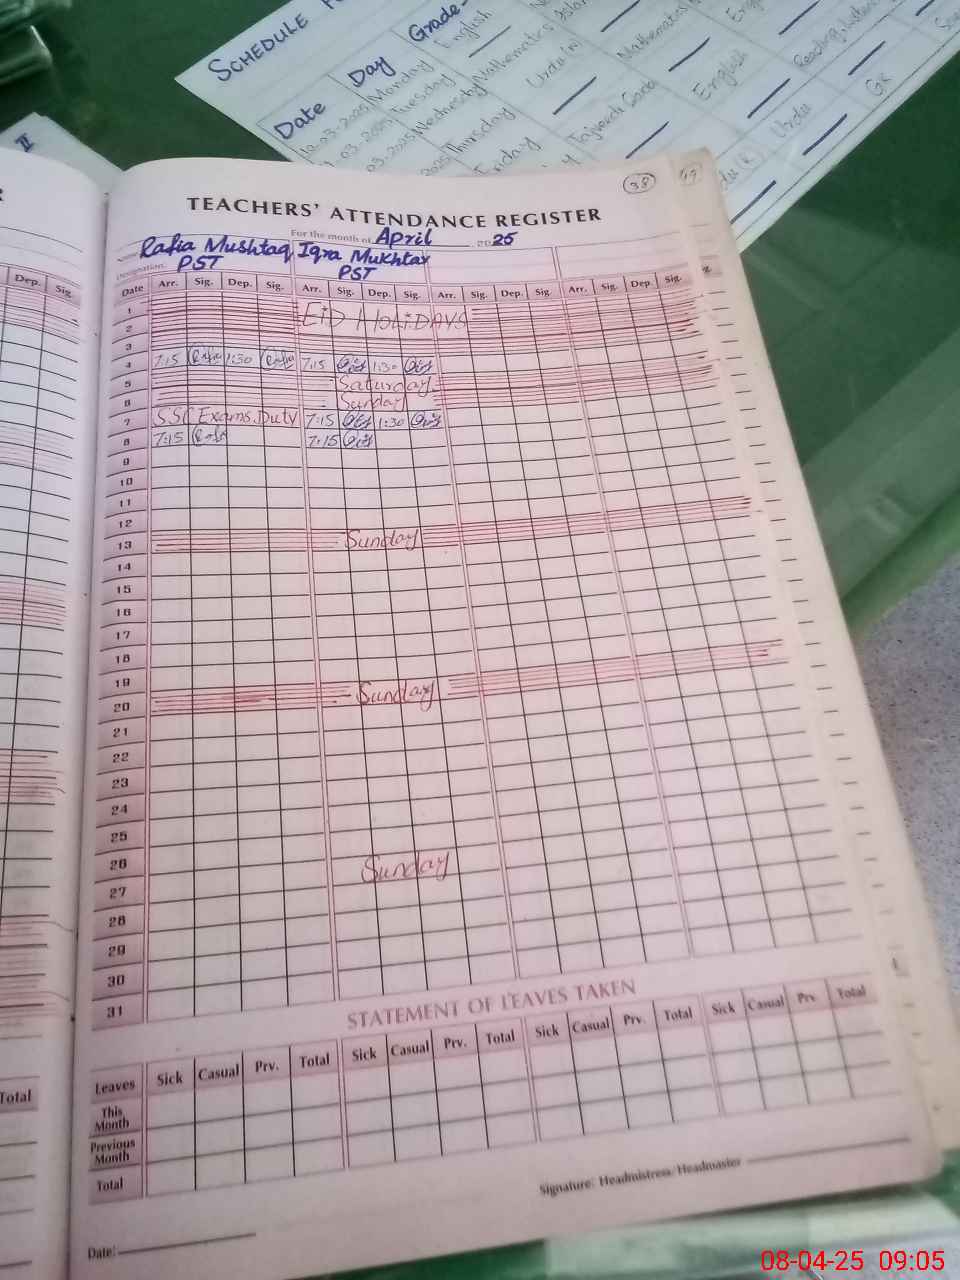 SCHEDULE
Date Day Grade-
Monday English
Tuesday Mathematics
Wednesday Urdu (N)
Thursday
II
38
TEACHERS' ATTENDANCE REGISTER
For the month of April 2025
Name Rafia Mushtaq Iqra Mukhtar
Designation. PST PST
Dep. Sig.
Date Arr. Sig. Dep. Sig. Arr. Sig. Dep. Sig. Arr. Sig. Dep. Sig. Arr. Sig. Dep. Sig.
1 EiD HOLiDAYS
2
3
4 7:15 1:30 7:15 1:30
5 Saturday
6 Sunday
7 SSC Exams Duty 7:15 1:30
8 7:15 7:15
9
10
11
12
13 Sunday
14
15
16
17
18
19
20 Sunday
21
22
23
24
25
26
27 Sunday
28
29
30
31
STATEMENT OF LEAVES TAKEN
Leaves Sick Casual Prv. Total Sick Casual Prv. Total Sick Casual Prv. Total Sick Casual Prv. Total
This Month
Previous Month
Total
Total
Signature: Headmistress/Headmaster
Date:
08-04-25 09:05